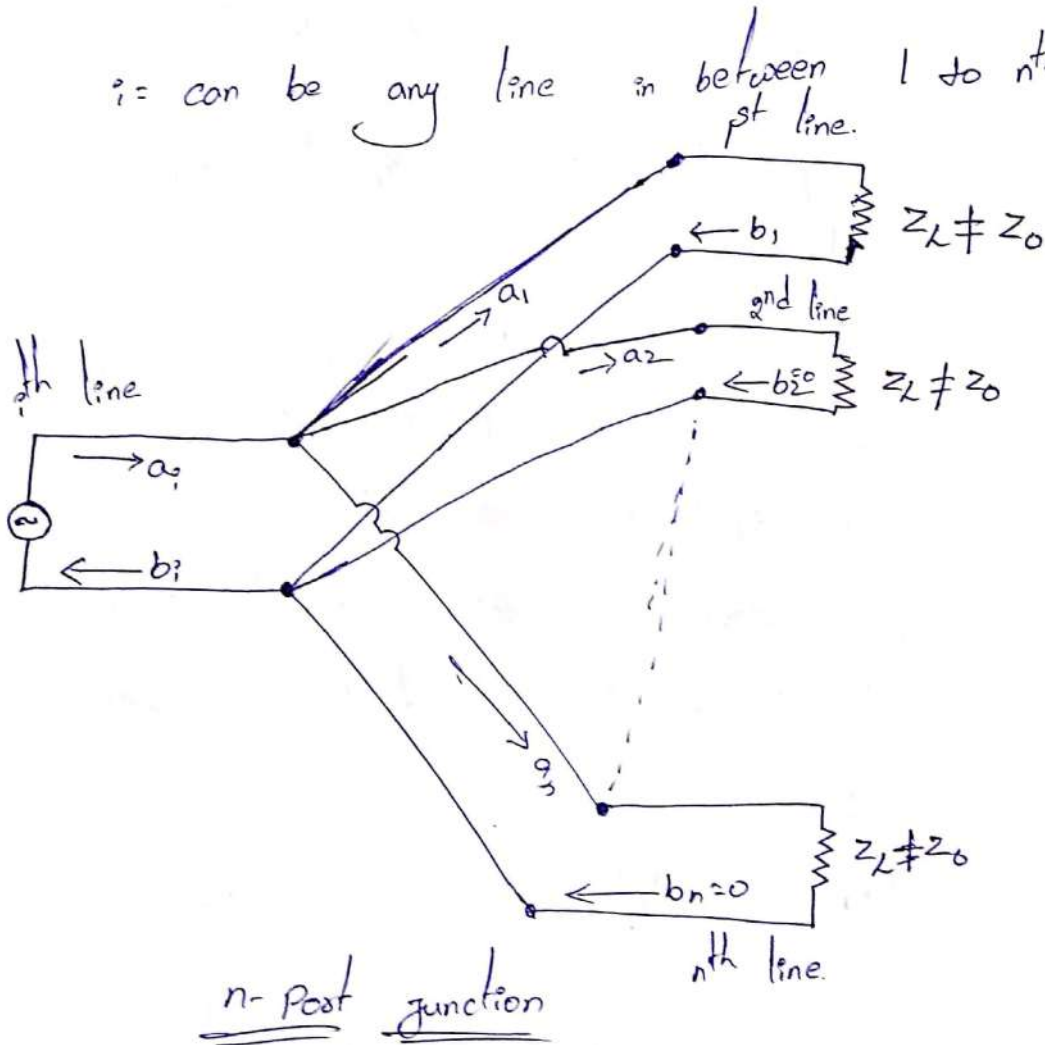 i = can be any line in between 1 to nth
1st line.
← b1
ZL ≠ Z0
a1
2nd line
→ a2
← b2=0
ZL ≠ Z0
ith line
→ ai
~
← bi
← bn=0
ZL ≠ Z0
nth line.
n- Port Junction